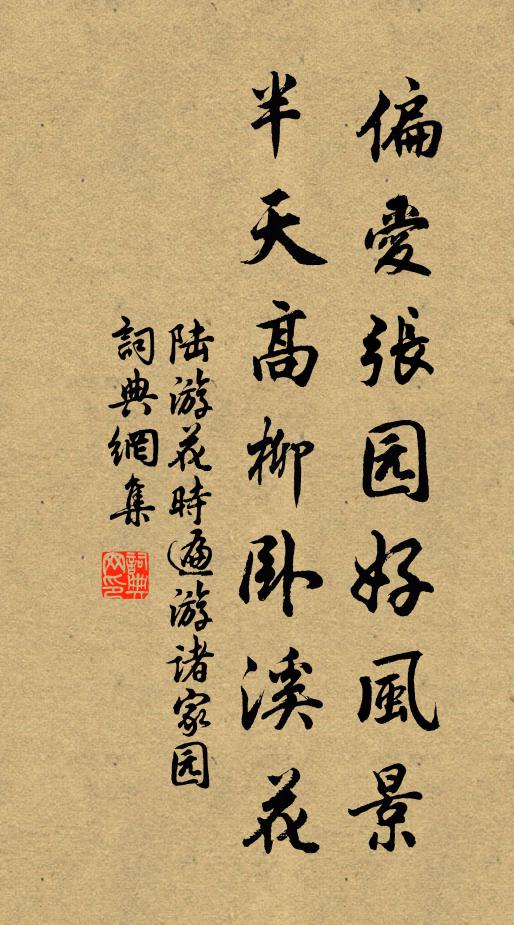 偏愛張园好風景
半天高柳卧溪花
陆游花時遍游诸家园
詞典網集
詞典
网印